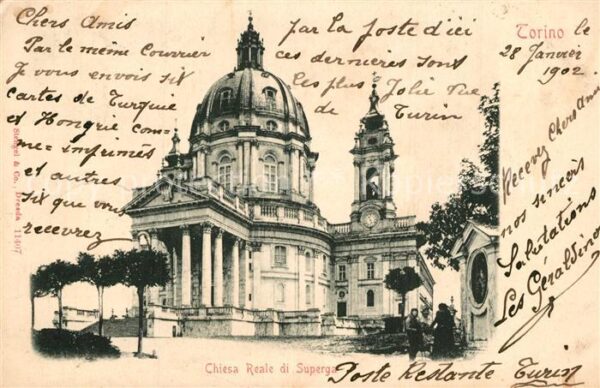 Chers Amis
Par le même Courrier
Je vous envois six
cartes de Turquie
et Hongrie com=
=me imprimés
et autres
six que vous
recevrez
par la poste d'ici
ces dernières sont
les plus Jolie vue
de Turin
Torino le
28 Janvier
1902.
Recevez Chers Amis
nos sincèrs
Salutations
Les Géraldino
Poste Restante Turin
Chiesa Reale di Superga
Stengel & Co., Dresda 11407